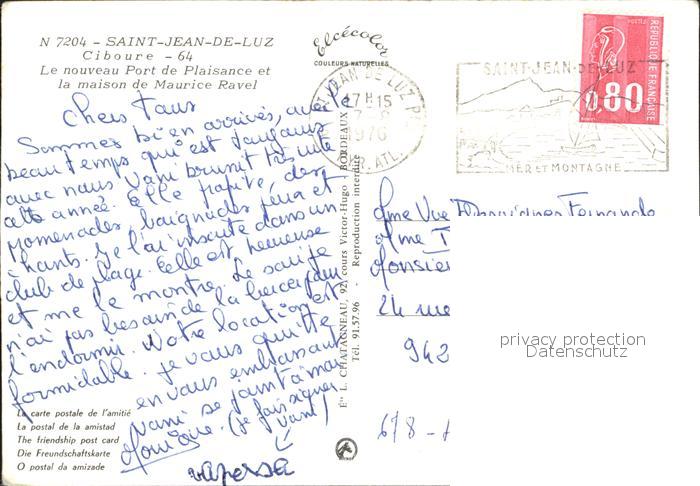 N 7204 - SAINT-JEAN-DE-LUZ
Ciboure - 64
Le nouveau Port de Plaisance et
la maison de Maurice Ravel
Elcécolor
COULEURS NATURELLES
Chers Tous
Sommes bien arrivés, avec le
beau temps qui est toujours
avec nous. Vani brunit très vite
cette année. Elle profite, des
promenades, baignades jeux et
chants. Je l'ai inscrite dans un
club de plage. Elle est heureuse
et me le montre. Le soir je
n'ai pas besoin de la bercer pour
l'endormir. Notre location est
formidable. Je vous quitte
en vous embrassant
Vani se joint à moi
Monique. (je fais signer
Vani)
La carte postale de l'amitié
La postal de la amistad
The friendship post card
Die Freundschaftskarte
O postal da amizade
Ets L. CHATAGNEAU, 92, cours Victor-Hugo BORDEAUX
Tél. 91.57.96 - Reproduction interdite
ST JEAN DE LUZ PPAL
17H15
1976
PYR. ATL.
SAINT-JEAN-DE-LUZ
MER ET MONTAGNE
REPUBLIQUE FRANÇAISE
POSTES
0,80
Mme Vve Fernande
Mme
Monsieur
24 rue
942
678 -
privacy protection
Datenschutz